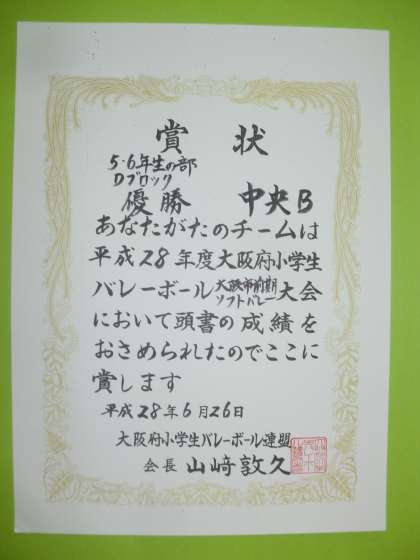 賞状
5・6年生の部
Dブロック
優勝 中央B
あなたがたのチームは
平成28年度大阪府小学生
バレーボール大阪市前期ソフトバレー大会
において頭書の成績を
おさめられたのでここに
賞します
平成28年6月26日
大阪府小学生バレーボール連盟
会長 山﨑敦久